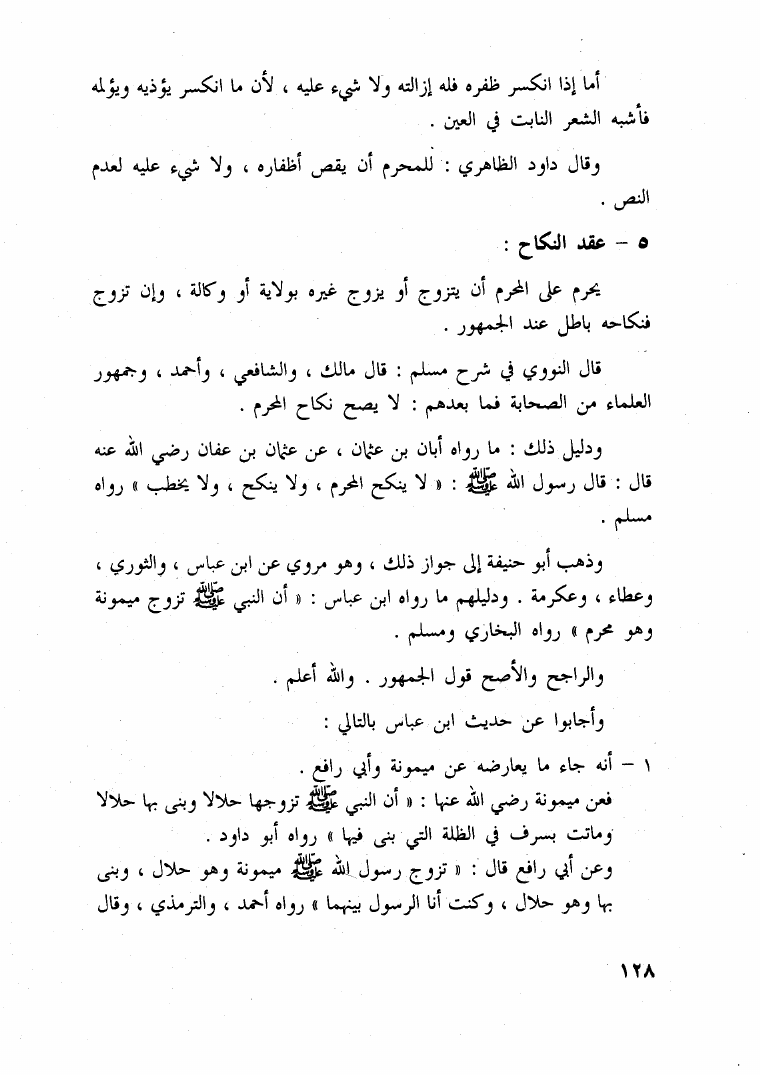 أما إذا انكسر ظفره فله إزالته ولا شيء عليه ، لأن ما انكسر يؤذيه ويؤلمه
فأشبه الشعر النابت في العين .
وقال داود الظاهري : للمحرم أن يقص أظفاره ، ولا شيء عليه لعدم
النص .
٥ – عقد النكاح :
يحرم على المحرم أن يتزوج أو يزوج غيره بولاية أو وكالة ، وإن تزوج
فنكاحه باطل عند الجمهور .
قال النووي في شرح مسلم : قال مالك ، والشافعي ، وأحمد ، وجمهور
العلماء من الصحابة فما بعدهم : لا يصح نكاح المحرم .
ودليل ذلك : ما رواه أبان بن عثمان ، عن عثمان بن عفان رضي الله عنه
قال : قال رسول الله ﷺ : « لا ينكح المحرم ، ولا ينكح ، ولا يخطب » رواه
مسلم .
وذهب أبو حنيفة إلى جواز ذلك ، وهو مروي عن ابن عباس ، والثوري ،
وعطاء ، وعكرمة . ودليلهم ما رواه ابن عباس : « أن النبي ﷺ تزوج ميمونة
وهو محرم » رواه البخاري ومسلم .
والراجح والأصح قول الجمهور . والله أعلم .
وأجابوا عن حديث ابن عباس بالتالي :
١ – أنه جاء ما يعارضه عن ميمونة وأبي رافع .
فعن ميمونة رضي الله عنها : « أن النبي ﷺ تزوجها حلالا وبنى بها حلالا
وماتت بسرف في الظلة التي بنى فيها » رواه أبو داود .
وعن أبي رافع قال : « تزوج رسول الله ﷺ ميمونة وهو حلال ، وبنى
بها وهو حلال ، وكنت أنا الرسول بينهما » رواه أحمد ، والترمذي ، وقال
١٢٨